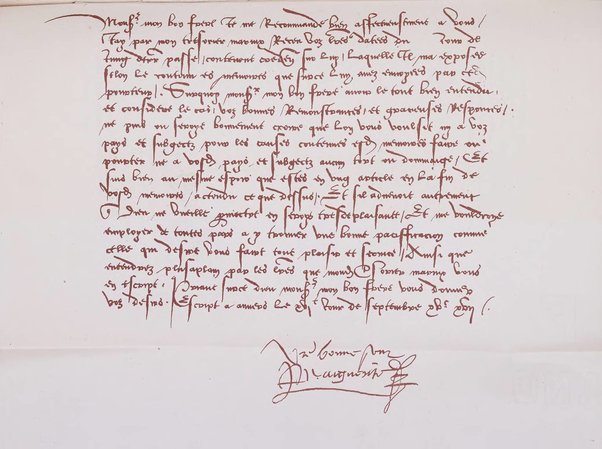 Mons.r mon bon frere Je me Recommande bien affectueusement a vous /
Jay par mon tresorier marnix Receu voz l~res datees du jour de
juing der~ passe / contenant credence sur luy / laquelle Il ma exposee
selon le contenu es memoires que surce luy auez enuoyees par ce
porteur / Surquoy mons.r mon bon frere auoir le tout bien entendu
et considere le cas / voz bonnes Remonstrances / et gracieuses Responces /
ne puis ou seroye bonnement croire que lon vous voulsist ny a voz
pays et subgectz pour les causes contenues esd. memoires faire ou
pourter ne a vosd. pays et subgectz aucun tort ou dommaige / Et
suis bien au mesme espoir que estes en vng article en la fin de
vosd. memoires / actendu ce que dessus / Et sil aduenoit autrement
que Dieu ne vueille / me seroye tresdesplaisante / Et me vouldroye
employer de toutes pars a y trouuer vne bonne pacifficacion comme
celle qui desire vous faire tout plaisir et seruice / Ainsi que
entendrez plusaplain par les l~res que mond. Tresorier marnix vous
en escript / Priant surce dieu mons.r mon bon frere vous donner
voz desirs / Escript a anuers le jour de septembre xv.c xxij /
V~re bonne seur
Marguerite